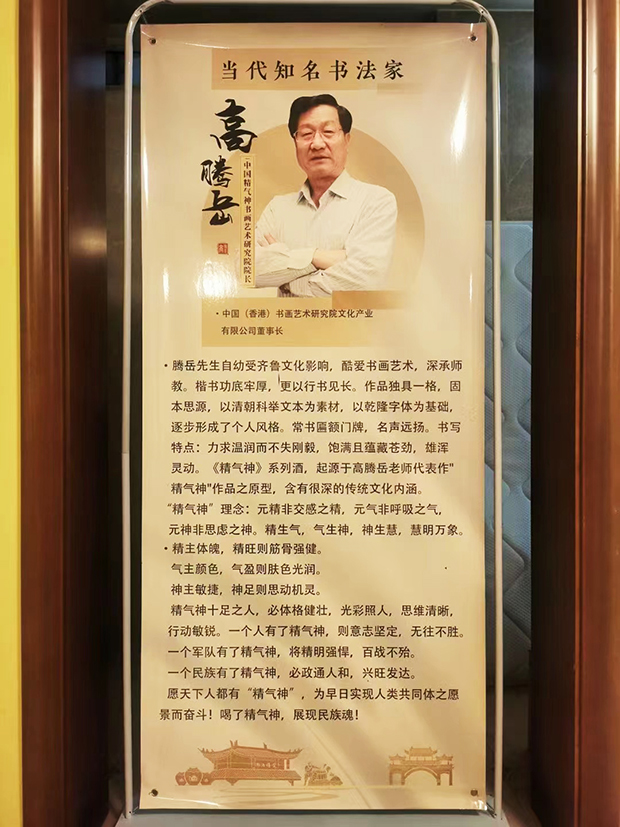 当代知名书法家
高腾岳
中国精气神书画艺术研究院院长
·中国（香港）书画艺术研究院文化产业
有限公司董事长
·腾岳先生自幼受齐鲁文化影响，酷爱书画艺术，深承师
教。楷书功底牢厚，更以行书见长。作品独具一格，固
本思源，以清朝科举文本为素材，以乾隆字体为基础，
逐步形成了个人风格。常书匾额门牌，名声远扬。书写
特点：力求温润而不失刚毅，饱满且蕴藏苍劲，雄浑
灵动。《精气神》系列酒，起源于高腾岳老师代表作"
精气神"作品之原型，含有很深的传统文化内涵。
“精气神”理念：元精非交感之精，元气非呼吸之气，
元神非思虑之神。精生气，气生神，神生慧，慧明万象。
·精主体魄，精旺则筋骨强健。
气主颜色，气盈则肤色光润。
神主敏捷，神足则思动机灵。
精气神十足之人，必体格健壮，光彩照人，思维清晰，
行动敏锐。一个人有了精气神，则意志坚定，无往不胜。
一个军队有了精气神，将精明强悍，百战不殆。
一个民族有了精气神，必政通人和，兴旺发达。
愿天下人都有“精气神”，为早日实现人类共同体之愿
景而奋斗！喝了精气神，展现民族魂！